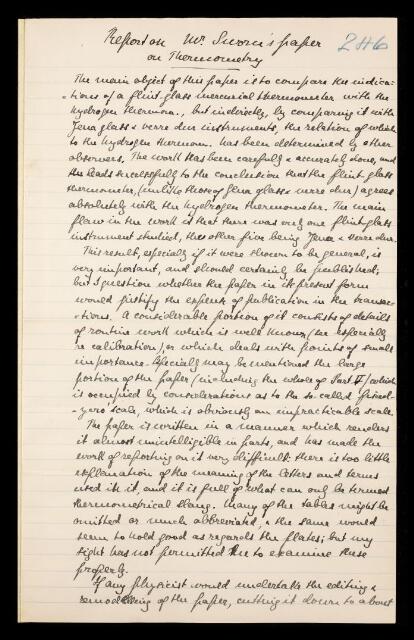 Report on Mr. Sworn's paper
246
on Thermometry
The main object of this paper is to compare the indica-
-tions of a flint-glass mercurial thermometer with the
hydrogen thermom., but indirectly, by comparing it with
Jena glass & verre dur instruments, the relation of which
to the hydrogen thermom. has been determined by other
observers. The work has been carefully & accurately done, and
the leads successfully to the conclusion that the flint-glass
thermometer, (unlike those of Jena glass & verre dur) agrees
absolutely with the hydrogen thermometer. The main
flaw in the work is that there was only one flint glass
instrument studied, the other five being Jena & verre dur.
This result, especially if it were shown to be general, is
very important, and should certainly be published;
but I question whether the paper in its present form
would justify the expense of publication in the transac-
-tions. A considerable portion of it consists of details
of routine work which is well known, (especially
re calibration), or which deals with points of small
importance. Specially may be mentioned the large
portion of the paper (including the whole of Part II) which
is occupied by considerations as to the so-called fixed-
-zero scale, which is obviously an impracticable scale.
The paper is written in a manner which renders
it almost unintelligible in parts, and has made the
work of reporting on it very difficult: there is too little
explanation of the meaning of the letters and terms
used in it, and it is full of what can only be termed
thermometrical slang. Many of the tables might be
omitted or much abbreviated, & the same would
seem to hold good as regards the plates; but my
sight has not permitted me to examine these
properly.
If any physicist would undertake the editing &
remodelling of the paper, cutting it down to about